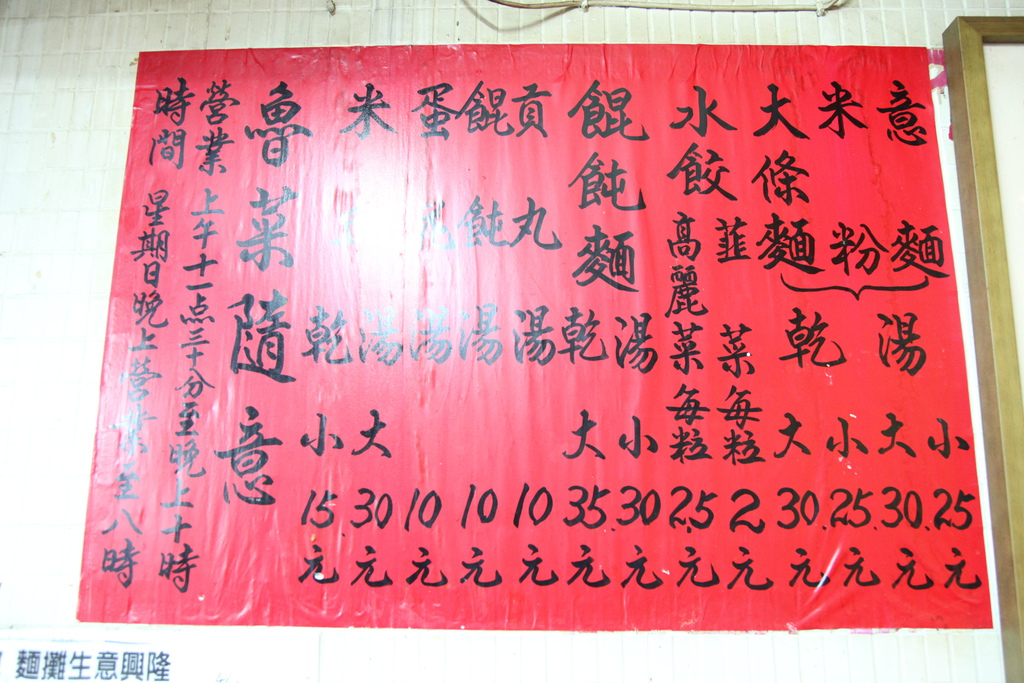 意麵
米粉
大條麵
湯 小 25元
大 30元
乾 小 25元
大 30元
水餃 韮菜 每粒 2元
高麗菜 每粒 2.5元
餛飩麵 湯 小 30元
乾 大 35元
貢丸湯 10元
餛飩湯 10元
蛋 湯 10元
米 湯 大 30元
乾 小 15元
魯菜隨意
營業時間
上午十一点三十分至晚上十時
星期日晚上營業至八時
麵攤生意興隆